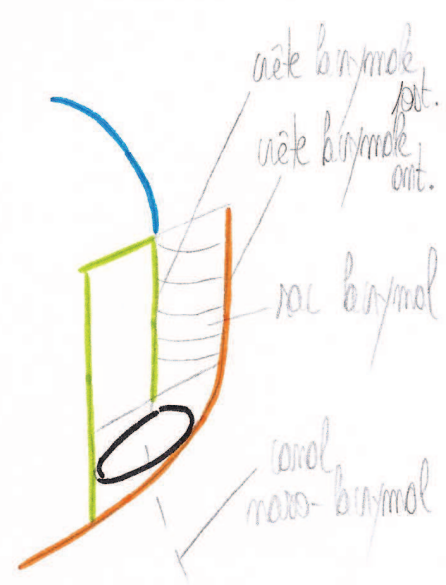 crête lacrymale
post.
crête lacrymale
ant.
sac lacrymal
canal
naso-lacrymal